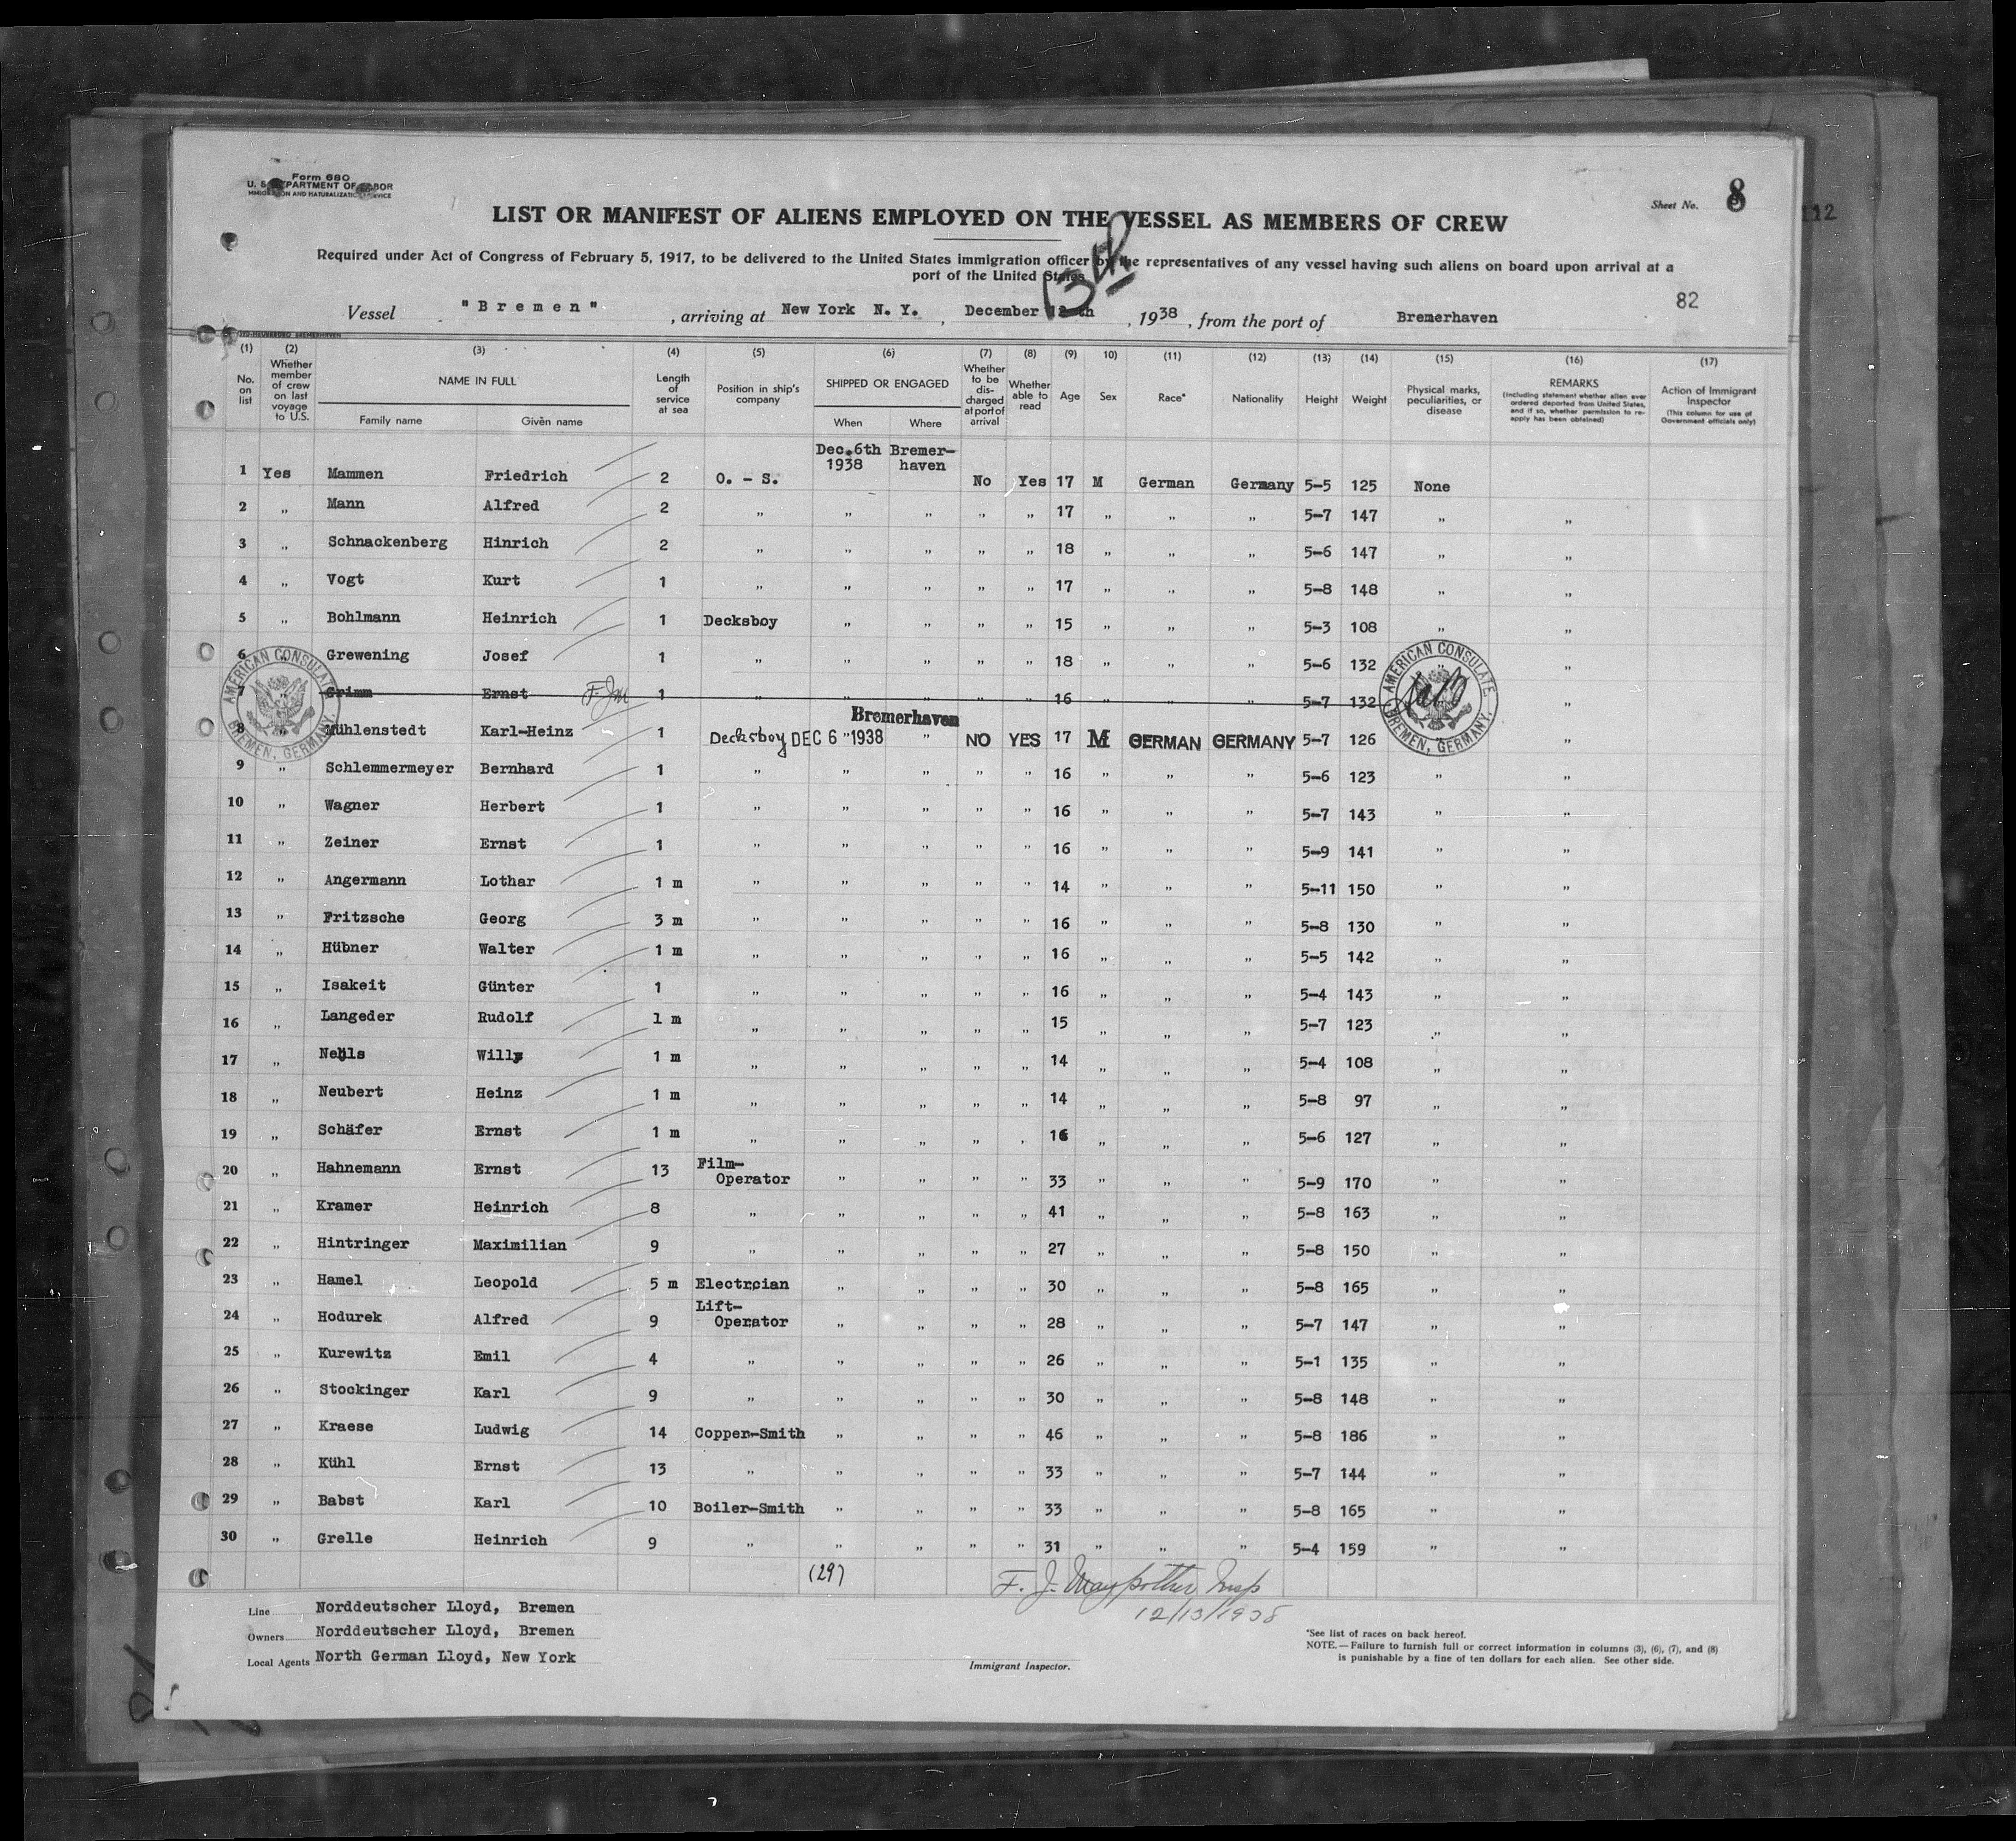 Form 680
U. S. DEPARTMENT OF LABOR
IMMIGRATION AND NATURALIZATION SERVICE
Sheet No. 8
112
LIST OR MANIFEST OF ALIENS EMPLOYED ON THE VESSEL AS MEMBERS OF CREW
Required under Act of Congress of February 5, 1917, to be delivered to the United States immigration officer by the representatives of any vessel having such aliens on board upon arrival at a
port of the United States
13th
82
Vessel "Bremen", arriving at New York N. Y., December 12th, 1938, from the port of Bremerhaven
(1) (2) (3) (4) (5) (6) (7) (8) (9) 10) (11) (12) (13) (14) (15) (16) (17)
No. on list
Whether member of crew on last voyage to U.S.
NAME IN FULL
Family name Given name
Length of service at sea
Position in ship's company
SHIPPED OR ENGAGED
When Where
Whether to be discharged at port of arrival
Whether able to read
Age
Sex
Race*
Nationality
Height
Weight
Physical marks, peculiarities, or disease
REMARKS
(Including statement whether alien ever ordered deported from United States, and if so, whether permission to reapply has been obtained)
Action of Immigrant Inspector
(This column for use of Government officials only)
1 Yes Mammen Friedrich 2 O. - S. Dec. 6th 1938 Bremer-haven No Yes 17 M German Germany 5-5 125 None
2 " Mann Alfred 2 " " " " " 17 " " " 5-7 147 " "
3 " Schnackenberg Hinrich 2 " " " " " 18 " " " 5-6 147 " "
4 " Vogt Kurt 1 " " " " " 17 " " " 5-8 148 " "
5 " Bohlmann Heinrich 1 Decksboy " " " " 15 " " " 5-3 108 " "
6 " Grewening Josef 1 " " " " " 18 " " " 5-6 132 " "
7 " Grimm Ernst 1 " " " " " 16 " " " 5-7 132 "
8 " Mühlenstedt Karl-Heinz 1 Decksboy DEC 6 " 1938 Bremerhaven " NO YES 17 M GERMAN GERMANY 5-7 126 " "
9 " Schlemmermeyer Bernhard 1 " " " " " 16 " " " 5-6 123 " "
10 " Wagner Herbert 1 " " " " " 16 " " " 5-7 143 " "
11 " Zeiner Ernst 1 " " " " " 16 " " " 5-9 141 " "
12 " Angermann Lothar 1 m " " " " " 14 " " " 5-11 150 " "
13 " Fritzsche Georg 3 m " " " " " 16 " " " 5-8 130 " "
14 " Hübner Walter 1 m " " " " " 16 " " " 5-5 142 " "
15 " Isakeit Günter 1 " " " " " 16 " " " 5-4 143 " "
16 " Langeder Rudolf 1 m " " " " " 15 " " " 5-7 123 " "
17 " Willy 1 m " " " " " 14 " " " 5-4 108 " "
18 " Neubert Heinz 1 m " " " " " 14 " " " 5-8 97 " "
19 " Schäfer Ernst 1 m " " " " " 16 " " " 5-6 127 " "
20 " Hahnemann Ernst 13 Film-Operator " " " " 33 " " " 5-9 170 " "
21 " Kramer Heinrich 8 " " " " " 41 " " " 5-8 163 " "
22 " Hintringer Maximilian 9 " " " " " 27 " " " 5-8 150 " "
23 " Hamel Leopold 5 m Electrcian " " " " 30 " " " 5-8 165 " "
24 " Hodurek Alfred 9 Lift-Operator " " " " 28 " " " 5-7 147 " "
25 " Kurewitz Emil 4 " " " " " 26 " " " 5-1 135 " "
26 " Stockinger Karl 9 " " " " " 30 " " " 5-8 148 " "
27 " Kraese Ludwig 14 Copper-Smith " " " " 46 " " " 5-8 186 " "
28 " Kühl Ernst 13 " " " " " 33 " " " 5-7 144 " "
29 " Babst Karl 10 Boiler-Smith " " " " 33 " " " 5-8 165 " "
30 " Grelle Heinrich 9 " " " " " 31 " " " 5-4 159 " "
AMERICAN CONSULATE BREMEN, GERMANY.
AMERICAN CONSULATE BREMEN, GERMANY.
(29)
F. J. Insp
12/13/1938
Line Norddeutscher Lloyd, Bremen
Owners Norddeutscher Lloyd, Bremen
Local Agents North German Lloyd, New York
Immigrant Inspector.
*See list of races on back hereof.
NOTE.—Failure to furnish full or correct information in columns (3), (6), (7), and (8)
is punishable by a fine of ten dollars for each alien. See other side.